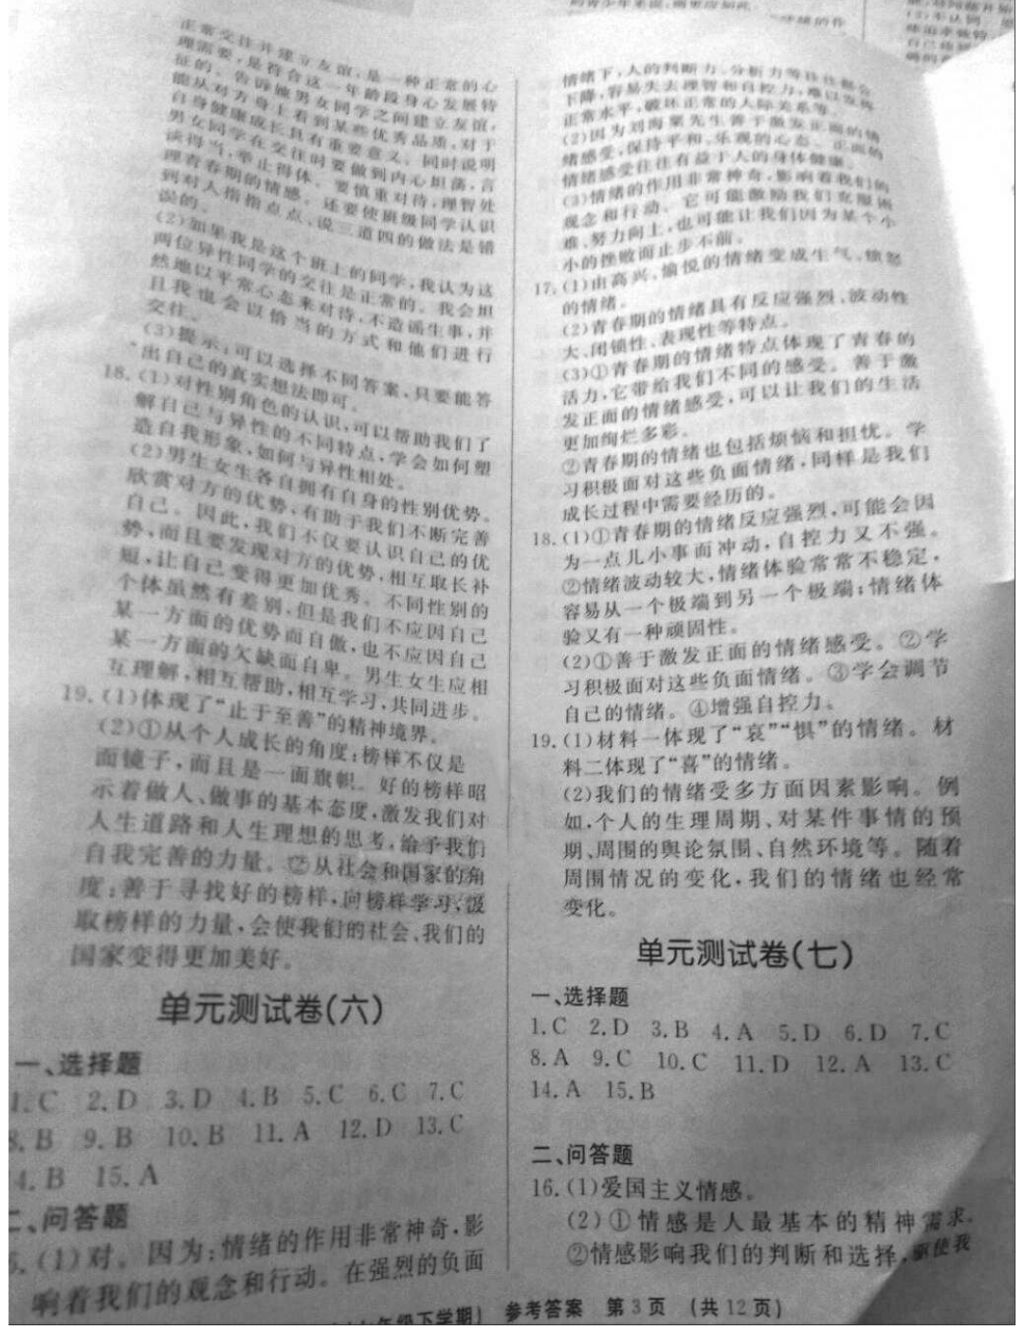 正常交往并建立友谊,是一种正常的心
理需要,是符合这一年龄段身心发展特
征的。告诉她男女同学之间建立友谊,
能从对方身上看到某些优秀品质,对于
自身健康成长具有重要意义。同时说明
男女同学在交往时要做到内心坦荡,言
谈得当,举止得体。要慎重对待,理智处
理青春期的情感。还要使班级同学认识
到对人指指点点、说三道四的做法是错
误的。
(2)如果我是这个班上的同学,我认为这
两位异性同学的交往是正常的。我会坦
然地以平常心态来对待,不造谣生事,并
且我也会以恰当的方式和他们进行
交往。
(3)提示:可以选择不同答案,只要能答
出自己的真实想法即可。
18.(1)对性别角色的认识,可以帮助我们了
解自己与异性的不同特点,学会如何塑
造自我形象,如何与异性相处。
(2)男生女生各自拥有自身的性别优势。
欣赏对方的优势,有助于我们不断完善
自己。因此,我们不仅要认识自己的优
势,而且要发现对方的优势,相互取长补
短,让自己变得更加优秀。不同性别的
个体虽然有差别,但是我们不应因自己
某一方面的优势而自傲,也不应因自己
某一方面的欠缺而自卑。男生女生应相
互理解,相互帮助,相互学习,共同进步。
19.(1)体现了“止于至善”的精神境界。
(2)①从个人成长的角度:榜样不仅是
面镜子,而且是一面旗帜。好的榜样昭
示着做人、做事的基本态度,激发我们对
人生道路和人生理想的思考,给予我们
自我完善的力量。②从社会和国家的角
度:善于寻找好的榜样,向榜样学习,汲
取榜样的力量,会使我们的社会、我们的
国家变得更加美好。
单元测试卷(六)
一、选择题
1.C 2.D 3.D 4.B 5.C 6.C 7.C
8.B 9.B 10.B 11.A 12.D 13.C
4.B 15.A
二、问答题
(1)对。因为:情绪的作用非常神奇,影
响着我们的观念和行动。在强烈的负面
情绪下,人的判断力、分析力等往往都会
下降,容易失去理智和自控力,难以发挥
正常水平,破坏正常的人际关系等。
(2)因为刘海粟先生善于激发正面的情
绪感受,保持平和、乐观的心态。正面的
情绪感受往往有益于人的身体健康。
(3)情绪的作用非常神奇,影响着我们的
观念和行动。它可能激励我们克服困
难、努力向上,也可能让我们因为某个小
小的挫败而止步不前。
17.(1)由高兴、愉悦的情绪变成生气、愤怒
的情绪。
(2)青春期的情绪具有反应强烈、波动性
大、闭锁性、表现性等特点。
(3)①青春期的情绪特点体现了青春的
活力,它带给我们不同的感受。善于激
发正面的情绪感受,可以让我们的生活
更加绚烂多彩。
②青春期的情绪也包括烦恼和担忧。学
习积极面对这些负面情绪,同样是我们
成长过程中需要经历的。
18.(1)①青春期的情绪反应强烈,可能会因
为一点儿小事而冲动,自控力又不强。
②情绪波动较大,情绪体验常常不稳定,
容易从一个极端到另一个极端;情绪体
验又有一种顽固性。
(2)①善于激发正面的情绪感受。②学
习积极面对这些负面情绪。③学会调节
自己的情绪。④增强自控力。
19.(1)材料一体现了“哀”“惧”的情绪。材
料二体现了“喜”的情绪。
(2)我们的情绪受多方面因素影响。例
如,个人的生理周期、对某件事情的预
期、周围的舆论氛围、自然环境等。随着
周围情况的变化,我们的情绪也经常
变化。
单元测试卷(七)
一、选择题
1.C 2.D 3.B 4.A 5.D 6.D 7.C
8.A 9.C 10.C 11.D 12.A 13.C
14.A 15.B
二、问答题
16.(1)爱国主义情感。
(2)①情感是人最基本的精神需求。
②情感影响我们的判断和选择,驱使我
年级下学期) 参考答案 第3页 (共12页)